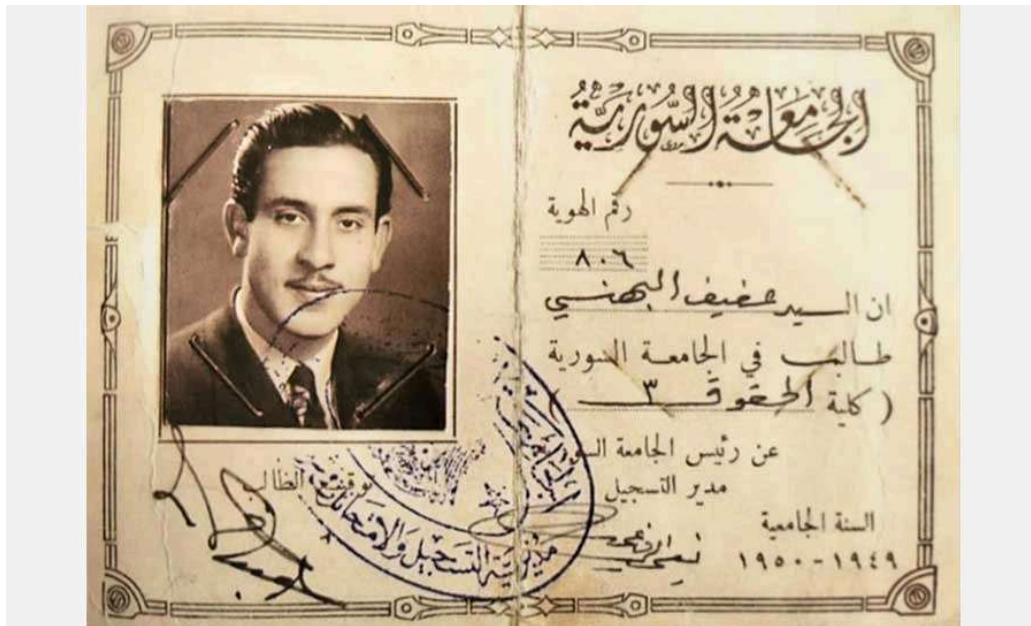 الجامعة السورية
رقم الهوية
٨٠٦
ان السيد عفيف البهنسي
طالب في الجامعة السورية
( كلية الحقوق ٣
عن رئيس الجامعة السو
مدير التسجيل
السنة الجامعية
١٩٤٩ - ١٩٥٠
توقيع الطالب
مديرية التسجيل والامتحانات